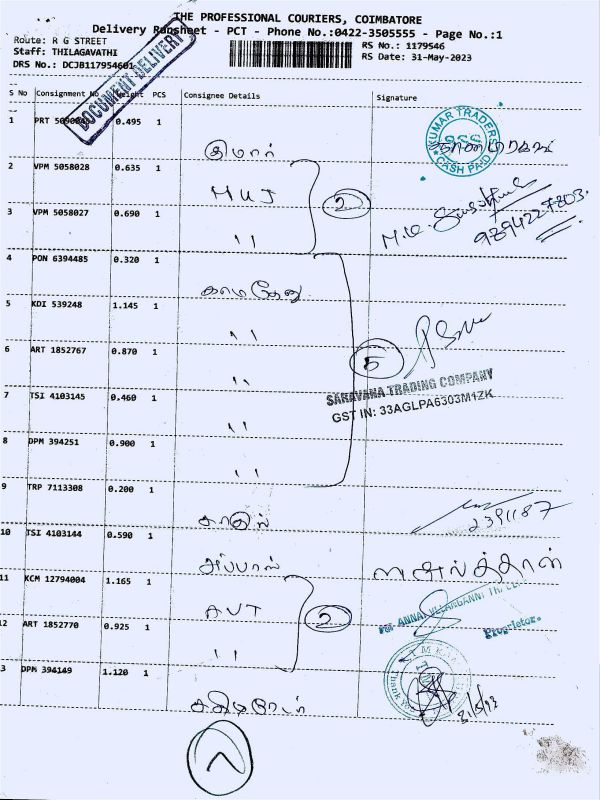 THE PROFESSIONAL COURIERS, COIMBATORE
Delivery Runsheet - PCT - Phone No.:0422-3505555 - Page No.:1
Route: R G STREET
RS No.: 1179546
Staff: THILAGAVATHI
RS Date: 31-May-2023
DRS No.: DCJB117954601
DOCUMENT DELIVERY
S No Consignment No Weight PCS Consignee Details Signature
1 PRT 0.495 1
குமார்
KUMAR TRADERS
CASH PAID
2 VPM 5058028 0.635 1
MUJ
2
3 VPM 5058027 0.690 1
" 
9894227803
4 PON 6394485 0.320 1
காமதேனு
5 KDI 539248 1.145 1
"
6 ART 1852767 0.870 1
"
5
7 TSI 4103145 0.460 1
"
SARAVANA TRADING COMPANY
GST IN: 33AGLPA6303M1ZK
8 DPM 394251 0.900 1
"
9 TRP 7113308 0.200 1
2391187
10 TSI 4103144 0.590 1
அப்பாஸ்
11 KCM 12794004 1.165 1
AVT
2
For ANNAI VELANKANNI
Proprietor.
12 ART 1852770 0.925 1
"
3 DPM 394149 1.120 1
Thank You